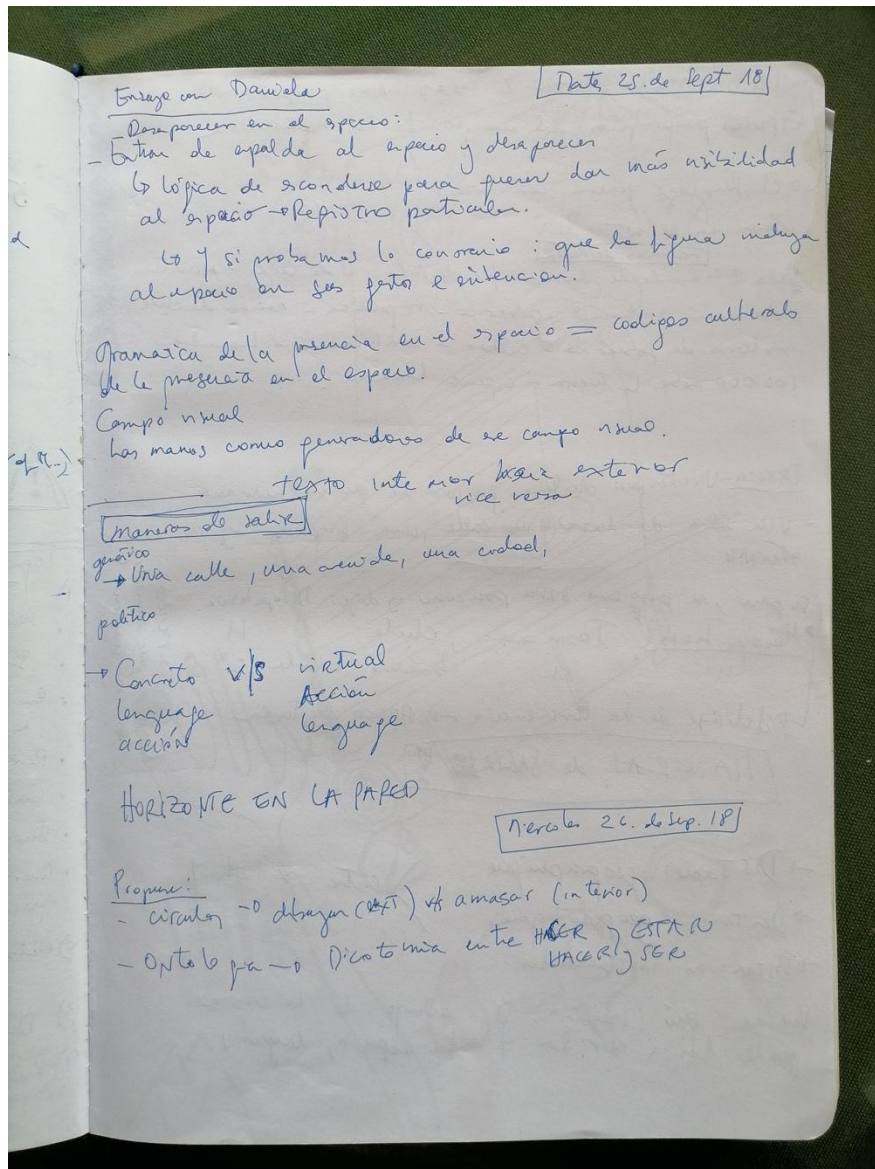 Ensayo con Daniela
Mate, 25. de Sept 18
- Desaparecer en el espacio:
- Entrar de espalda al espacio y desaparecer
↳ lógica de esconderse para querer dar más visibilidad
al espacio → Registro particular.
↳ Y si probamos lo contrario: que la figura incluya
al espacio en sus gestos e intencion.
Gramatica de la presencia en el espacio = codigos culturals
de la presencia en el espacio.
Campo visual
Las manos como generadoras de ese campo visual.
texto interior hacia exterior
vice versa
maneras de salir
genérico
→ Una calle, una avenida, una ciudad,
político
→ Concreto v/s virtual
lenguage Acción
acción lenguage
HORIZONTE EN LA PARED
Miercoles 26. de Sep. 18
Propune:
- circulos → dibujan (EXT) v/s amasar (interior)
- Ontologia → Dicotomia entre HACER y ESTAR
HACER y SER